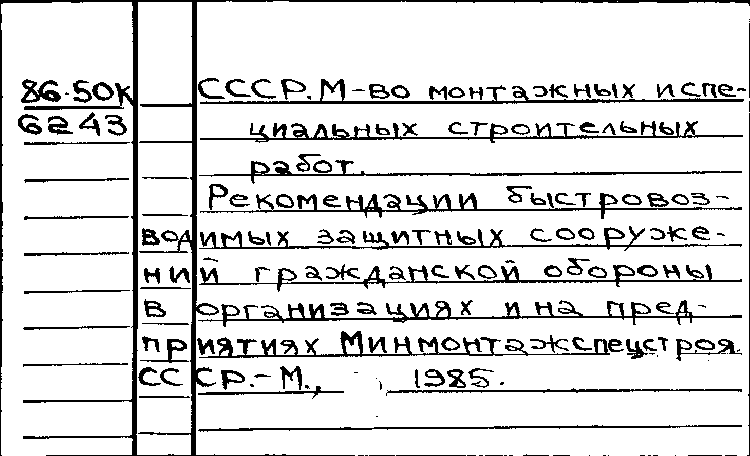 86-50к СССР. М-во монтажных и спе-
6243 циальных строительных
работ.
Рекомендации быстровоз-
водимых защитных сооруже-
ний гражданской обороны
в организациях и на пред-
приятиях Минмонтажспецстроя
СССР.- М., , 1985.